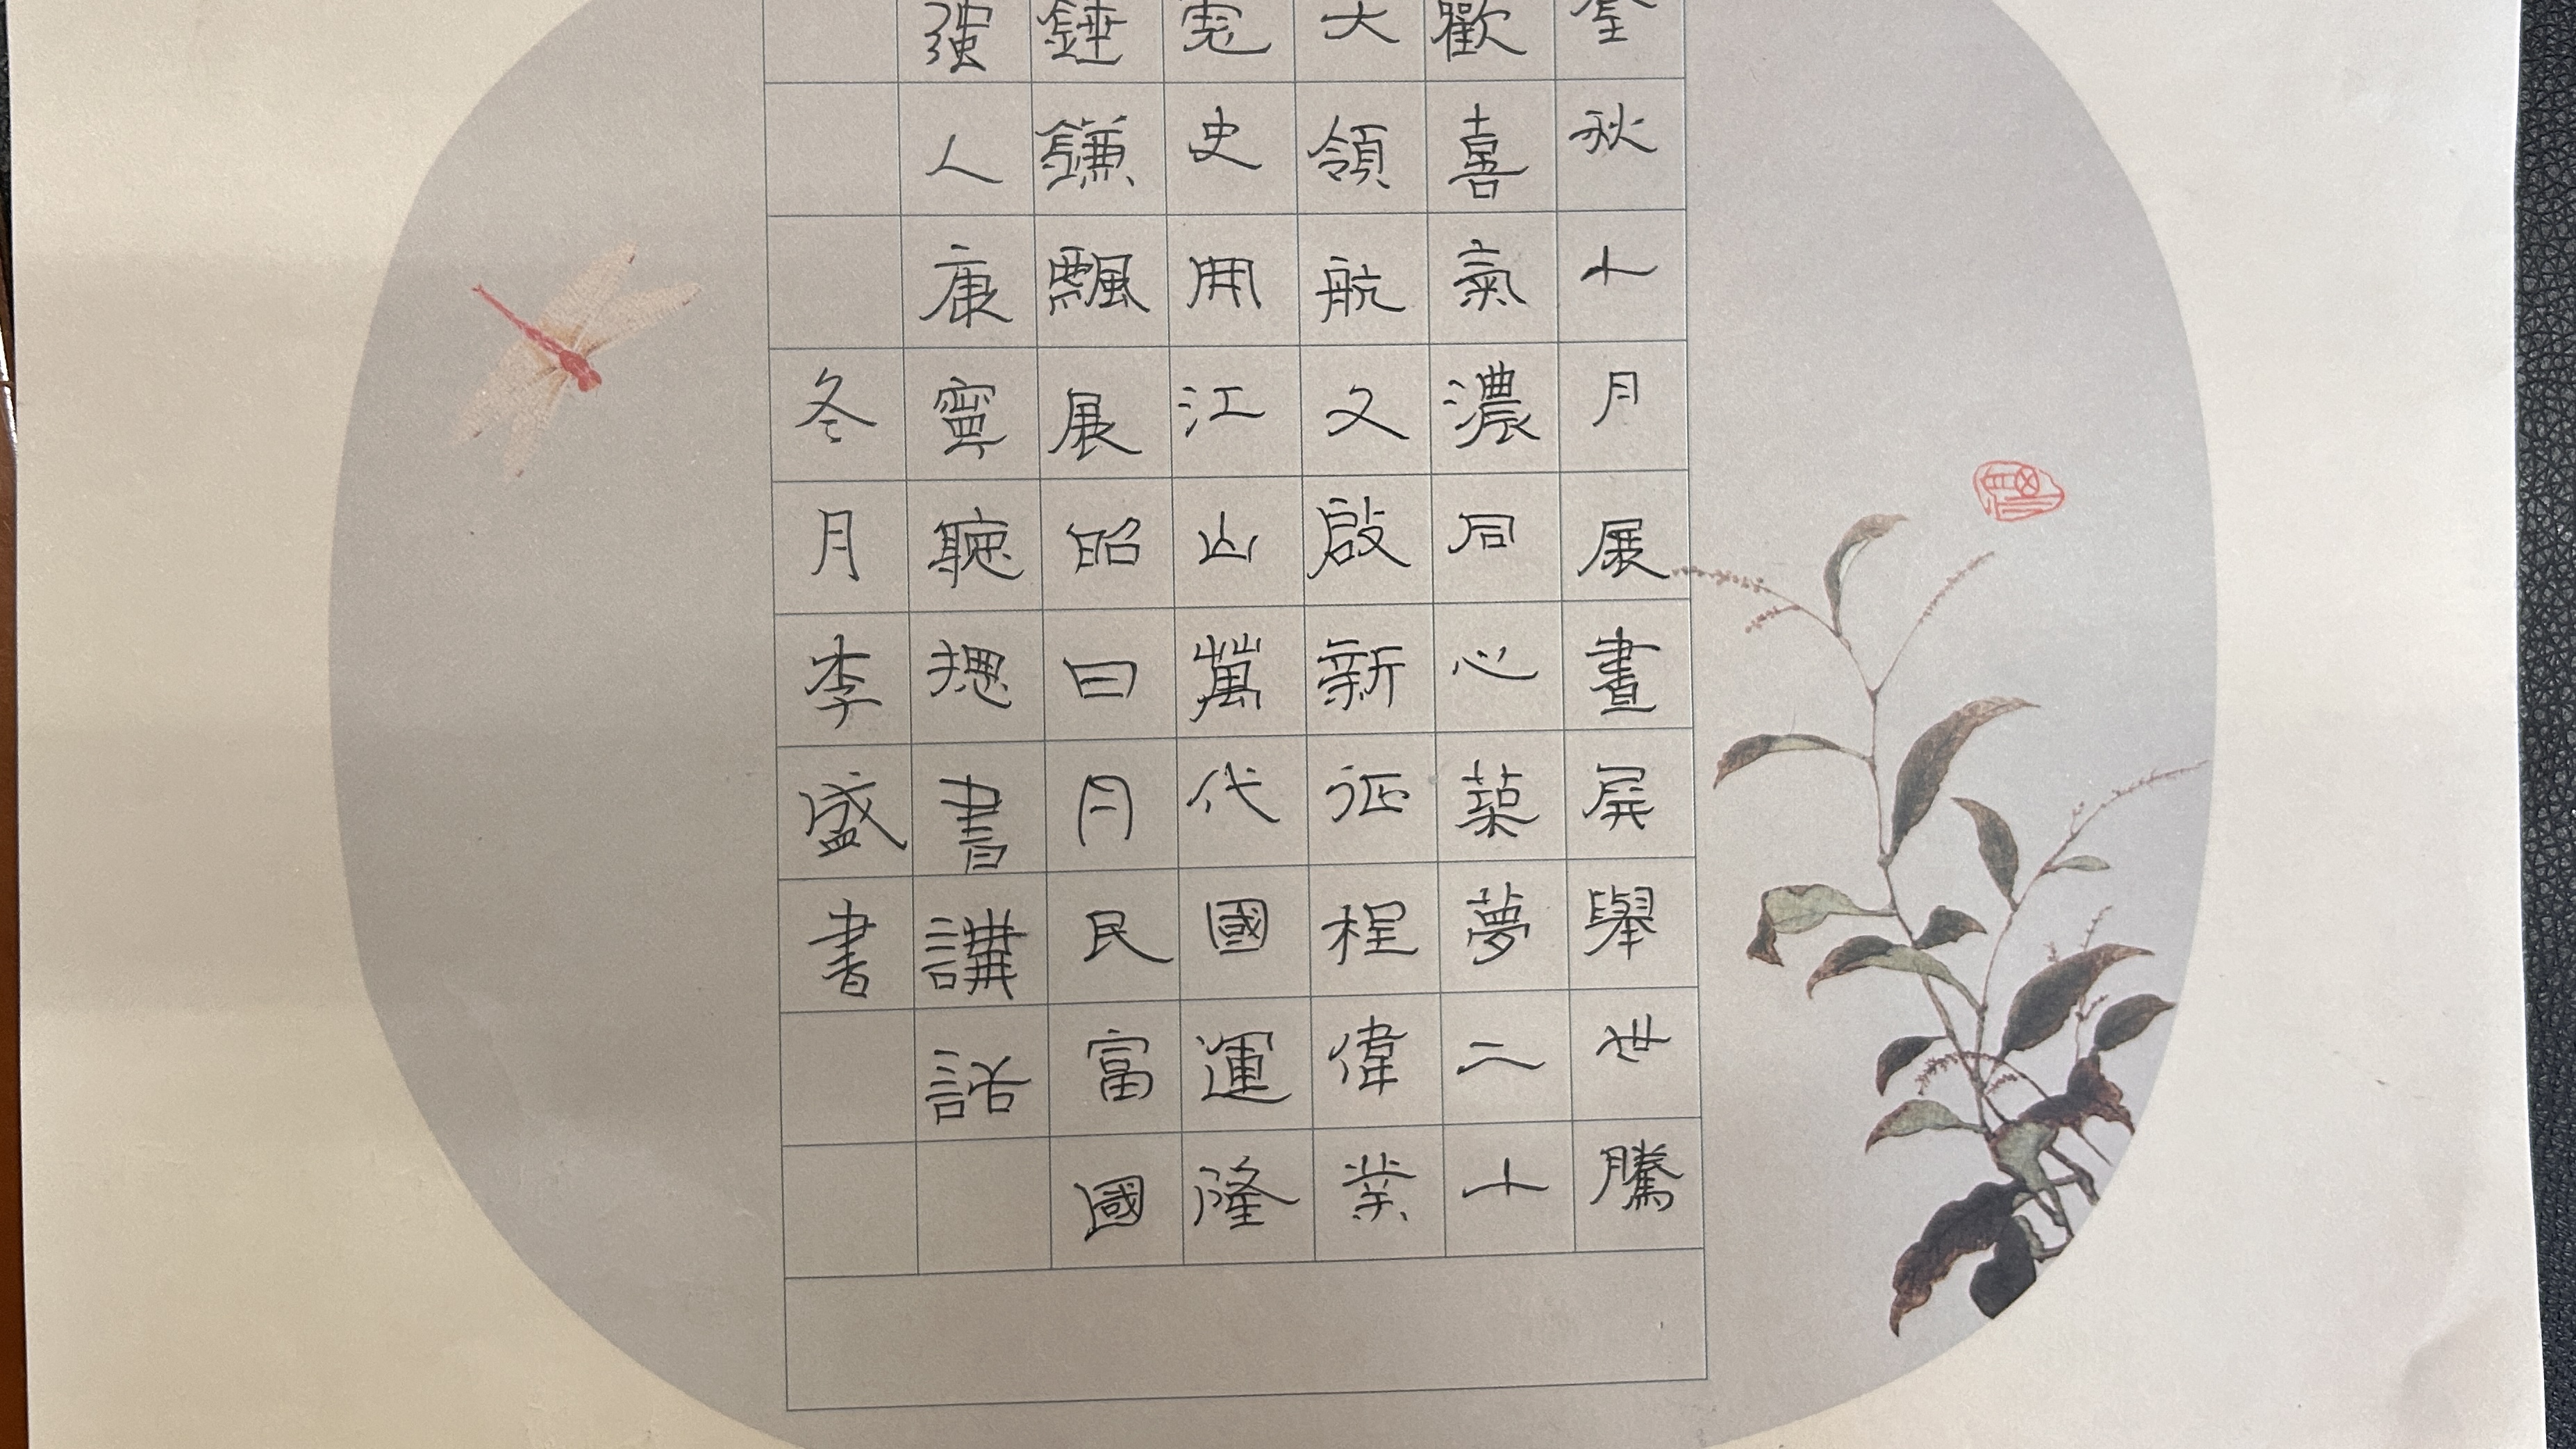 金秋十月展畫屏舉世騰
歡喜氣濃同心築夢二十
大領航又啟新征程偉業
史冊江山萬代國運隆
錘鐮飄展昭日月民富國
強人康寧聽總書講話
冬月李盛書